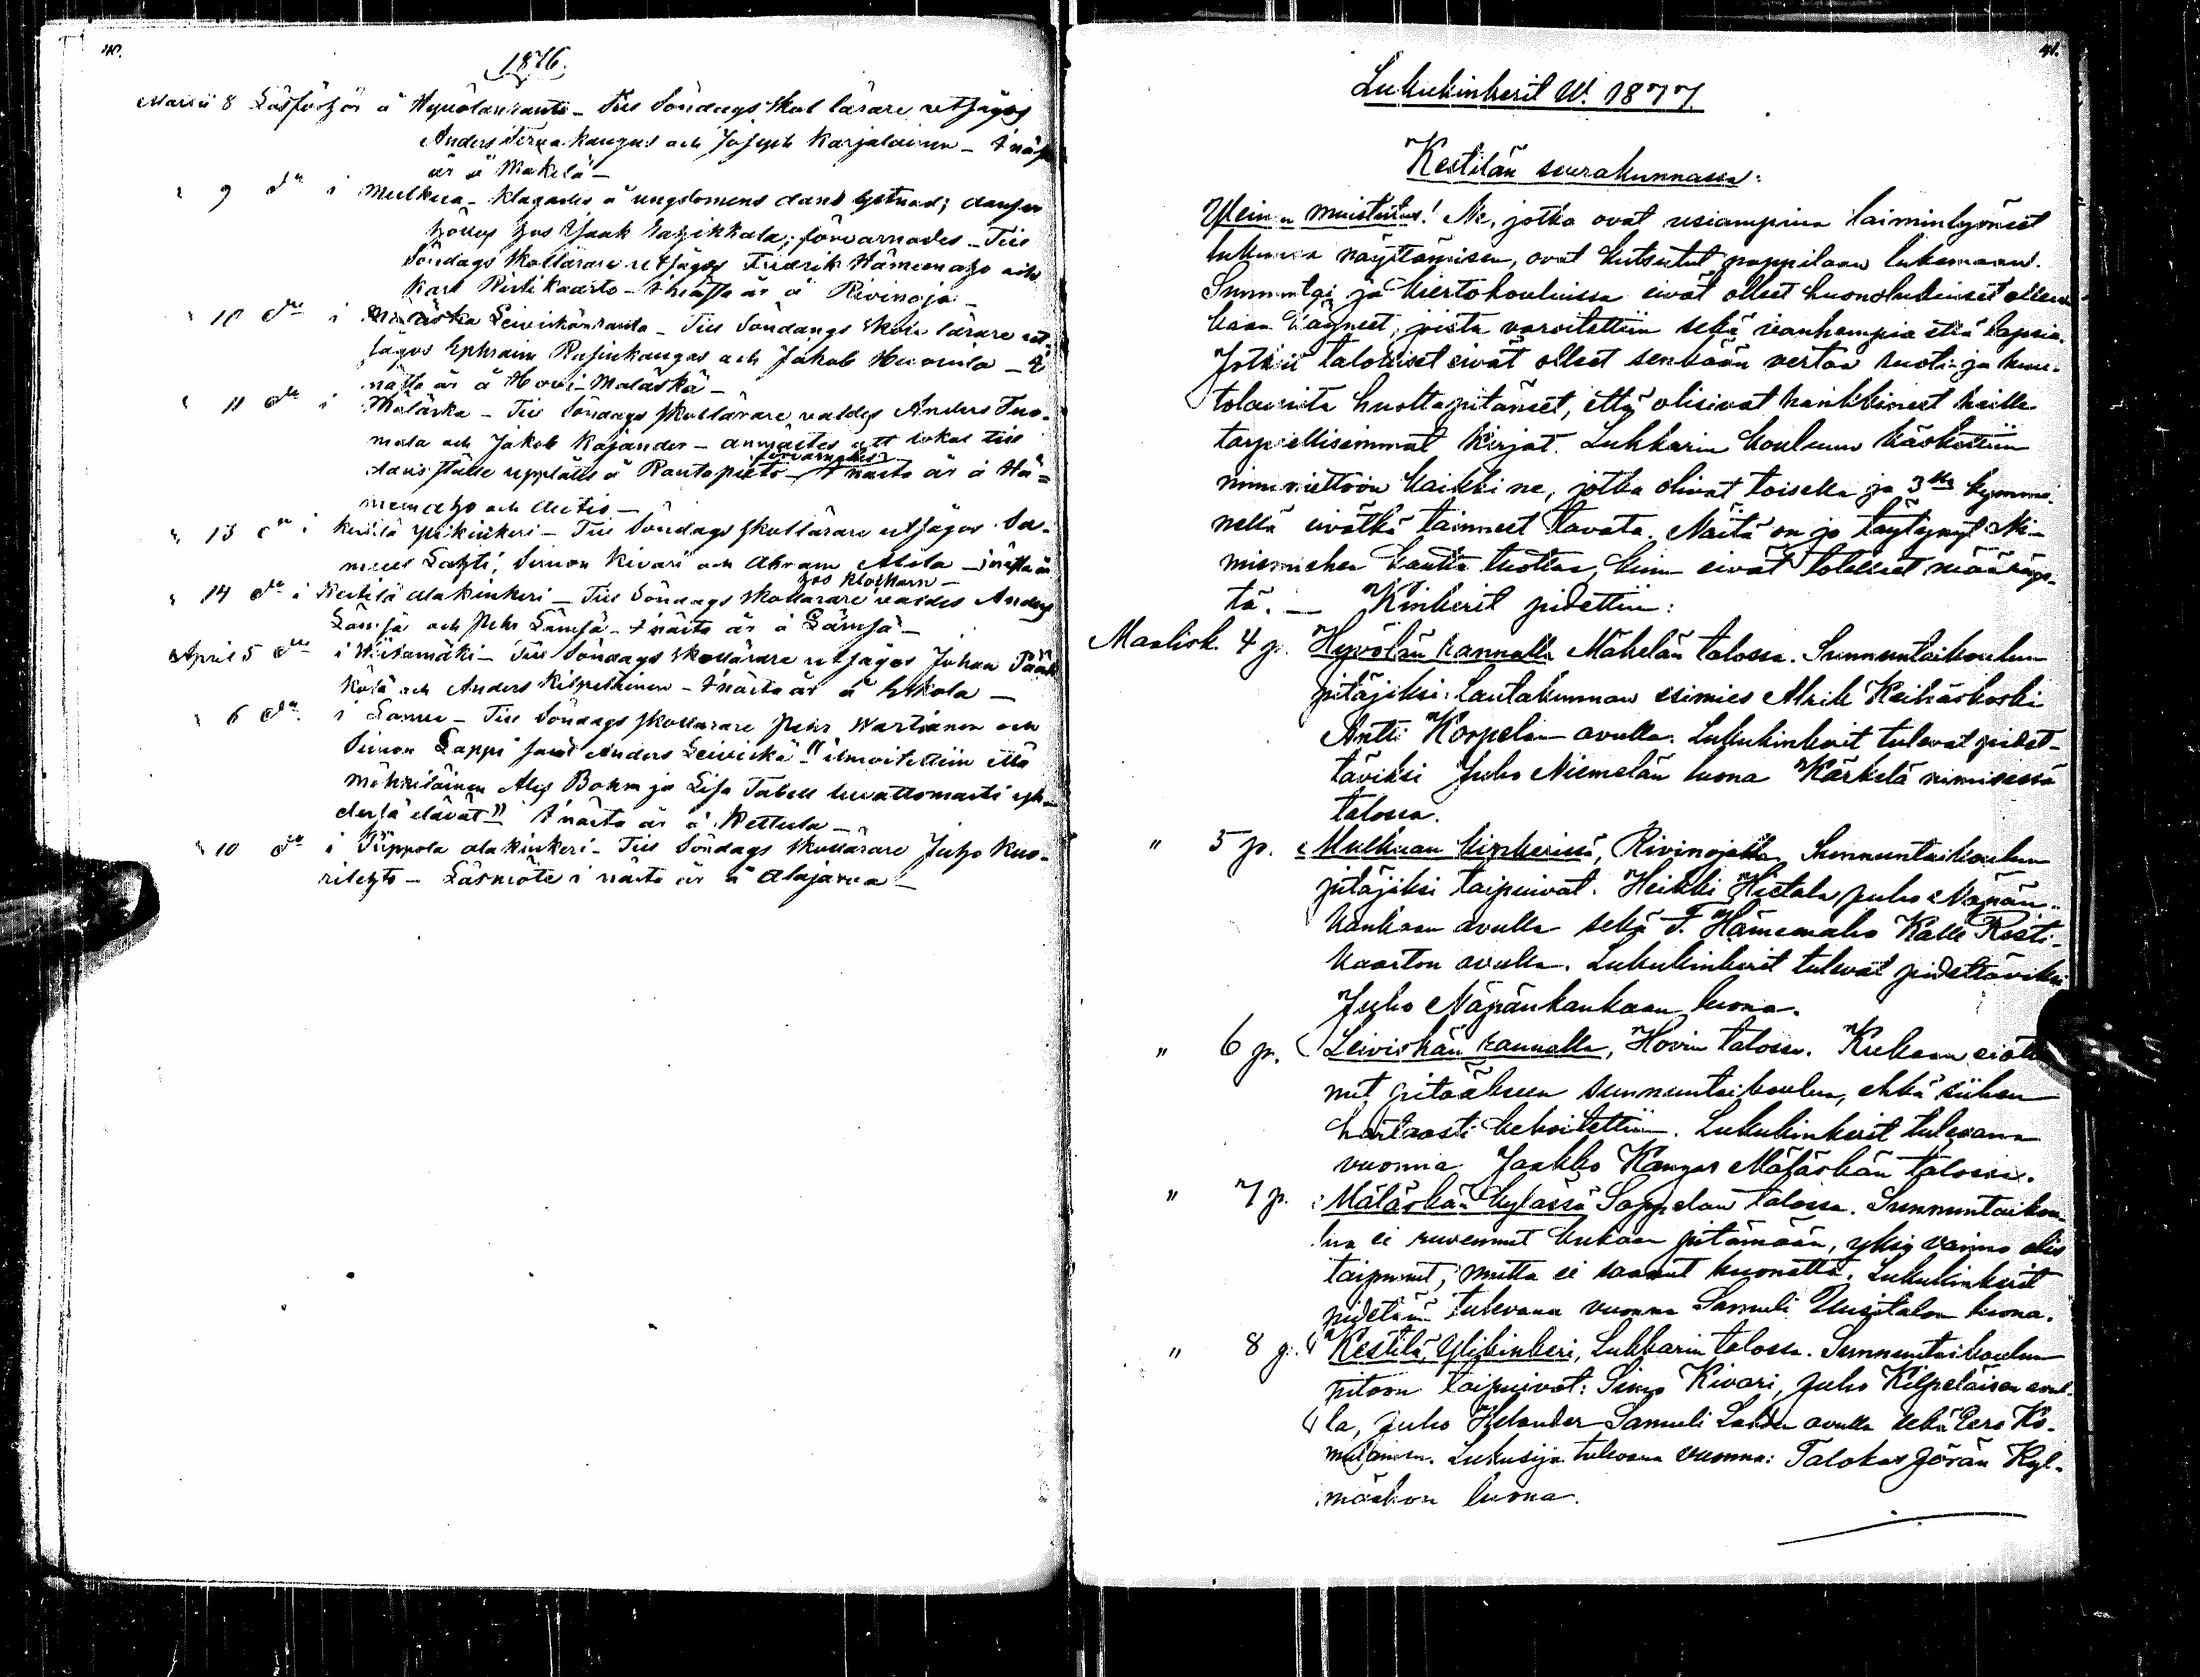 40.
1876.
Martii 8 Läsförhör å Hyvölänranta - Till Söndags Skol lärare utsågos
Anders Tervakangas och Joseph Karjalainen - t näst
är å Mäkelä -
" 9 dn i Mulkua - klagades å ungdomens dans lystnad; danser
hölles hos Isaak ; förvarnades - Till
Söndags Skollärare utsågos Fredrik Hämeenaho och
Karl Ristikaarto - t nästa år å Rivinoja -
" 10 dn i Mäläskä Leiviskänranta - Till Söndags skole lärare ut-
sågos Ephraim Rusinkangas och Jakob Huovila - t
nästa år å Hovi-Mäläskä -
" 11 dn i Mäläskä - Till Söndags skollärare valdes Anders Tuo-
mala och Jakob Kajander - anmältes att lokal till
förvarnades
dans ställe upplåtts å Rautapieto - t nästa år å Hä-
meenaho och Autio -
" 13 dn i Kestilä ylikinkeri - Till Söndags skollärare utsågos Sa-
muel Lahti, Simon Kivari och Abram Alila - i nästa år
hos klockarn -
" 14 dn i Kestilä alakinkeri - Till Söndags skollärare valdes Anders
Lämsä och Pehr Lämsä - t nästa år å Lämsä -
April 5 dn i Hiitamäki - Till Söndags skollärare utsågos Johan Pääk-
kölä och Anders Kilpeläinen - t nästa år å Eskola -
" 6 dn i Lamu - Till Söndags skollärare Pehr Wartianen och
Simon Lappi samt Anders Leiviskä " ilmoitettiin että
mökkiläinen Bohm ja Lisa Tabell luvattomasti yh-
dessä elävät" t nästa år å Kettula -
" 10 dn i Piippola alakinkeri - Till Söndags skollärare Juho Kuo-
rilehto - Läsmöte i nästa år å Alajärvia -
41.
Lukukinkerit W. 1877.
Kestilän seurakunnassa:
Yleinen muistutus! Ne, jotka ovat useampina laiminlyöneet
lukunsa näyttämisen, ovat kutsutut pappilaan lukemaan.
Sunnuntai ja kiertokouluissa eivät olleet huonolukuiset ollen-
kaan käyneet, joista varoitettiin sekä vanhempia että lapsia.
Jotkut talolliset eivät olleet senkään vertaa ruoti- ja huu-
tolaisista huolta pitäneet, että olisivat hankkineet heille
tarpeellisimmat kirjat. Lukkarin kouluun käskettiin
nimeniettöön kaikki ne, jotka olivat toisella ja 3lla kymme-
nellä eivätkä tainneet tavata. Näitä on jo täytynyt Ni-
mismiehen kautta tuottaa, kun eivät totelleet määräys-
tä. — Kinkerit pidettiin:
Maalisk. 4 p. Hyvölän rannalla Mäkelän talossa. Sunnuntaikoulun
pitäjiksi: lautakunnan esimies Keihäskoski
Antti Korpelan avulla. Lukukinkerit tulevat pidet-
täviksi Juho Niemelän luona Kärkelä nimisessä
talossa.
" 5 p. Mulkuan kinkerissä, Rivinojalla, Sunnuntaikoulun
pitäjiksi taipuivat: Heikki Hietala Juho Näpän-
kankaan avulla sekä F. Hämeenaho Kalle Risti-
kaarton avulla. Lukukinkerit tulevat pidettäviksi
Juho Näpänkankaan luona.
" 6 p. Leiviskän rannalla, Hovin talossa. Kukaan ei otta-
nut pitääkseen sunnuntaikoulua, ehkä siihen
hartaasti kehoitettiin. Lukukinkerit tulevana
vuonna Jaakko Kangas Mäläskän talossa.
" 7 p. Mäläskän kylässä Soppelan talossa. Sunnuntaikou-
lua ei ruvennut kukaan pitämään, yksi vaimo olis
taipunut, mutta ei saanut huonetta. Lukukinkerit
pidetään tulevana vuonna Samuli Uusitalon luona.
" 8 p. Kestilä, Ylikinkeri, Lukkarin talossa. Sunnuntaikoulun
pitoon taipuivat: Simo Kivari, Juho Kilpeläisen avul-
la, Juho Helander Samuli Lahden avulla sekä Eero Ko-
mulainen. Lukusija tulevana vuonna: Talokas Jörän Kyl-
mäahon luona.